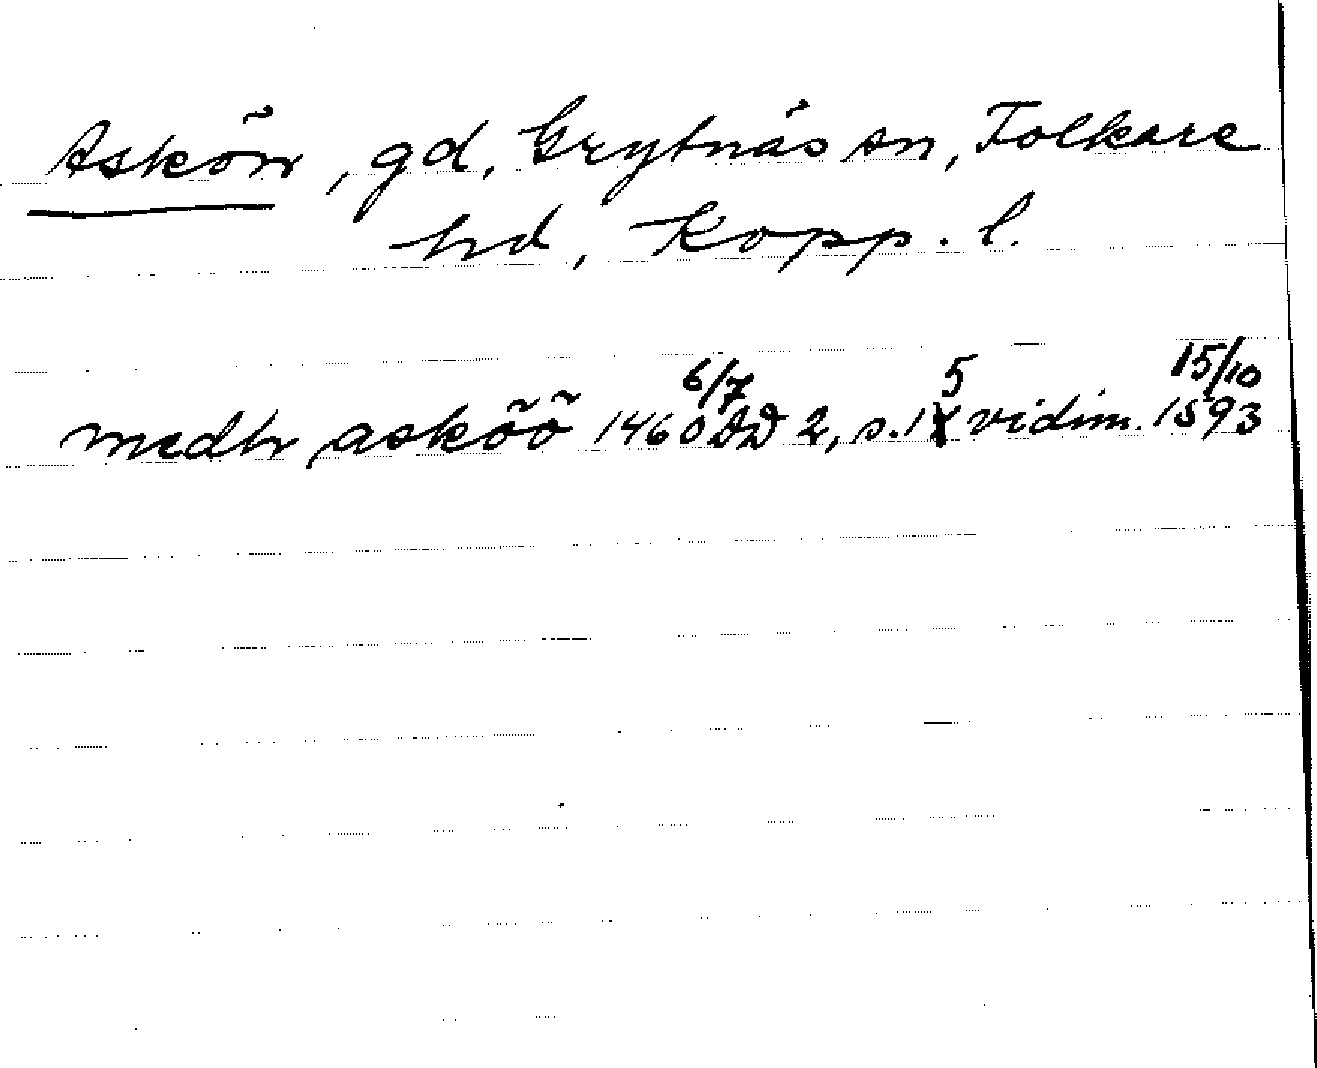 Askön, gd, Grytnäs sn, Folkare
hd, Kopp. l.
medh asköö 1460 6/7 DD 2, s. 15 vidim. 15/10 1593